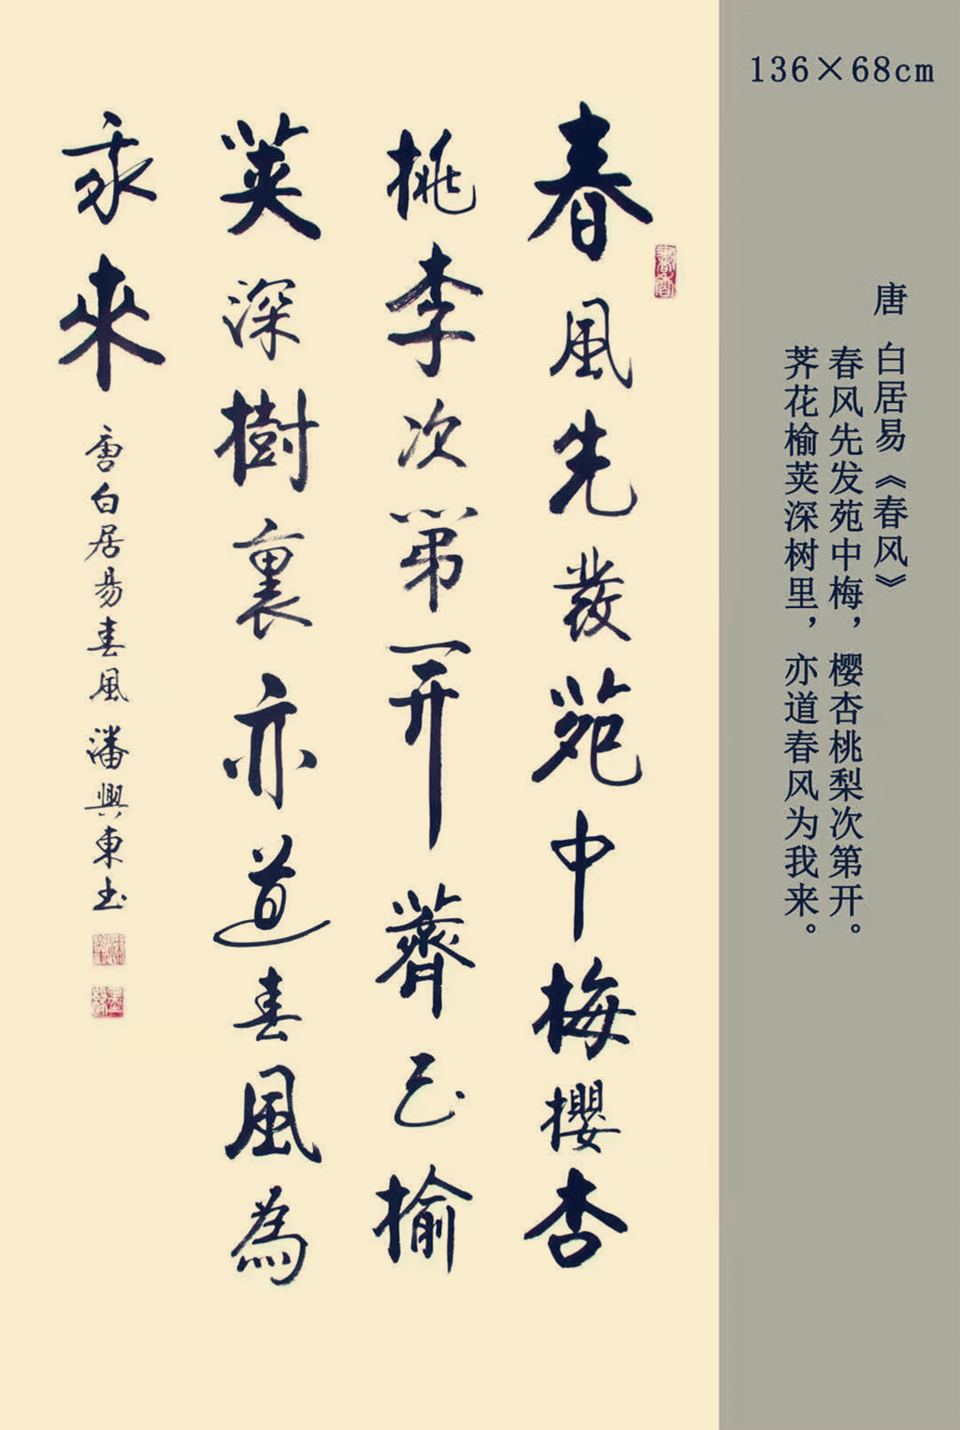 136×68cm
唐 白居易《春风》
春风先发苑中梅，樱杏桃梨次第开。
荠花榆荚深树里，亦道春风为我来。
春風先發苑中梅櫻杏
桃李次第開薺花榆
莢深樹裏亦道春風為
我來 唐白居易春風潘興東書